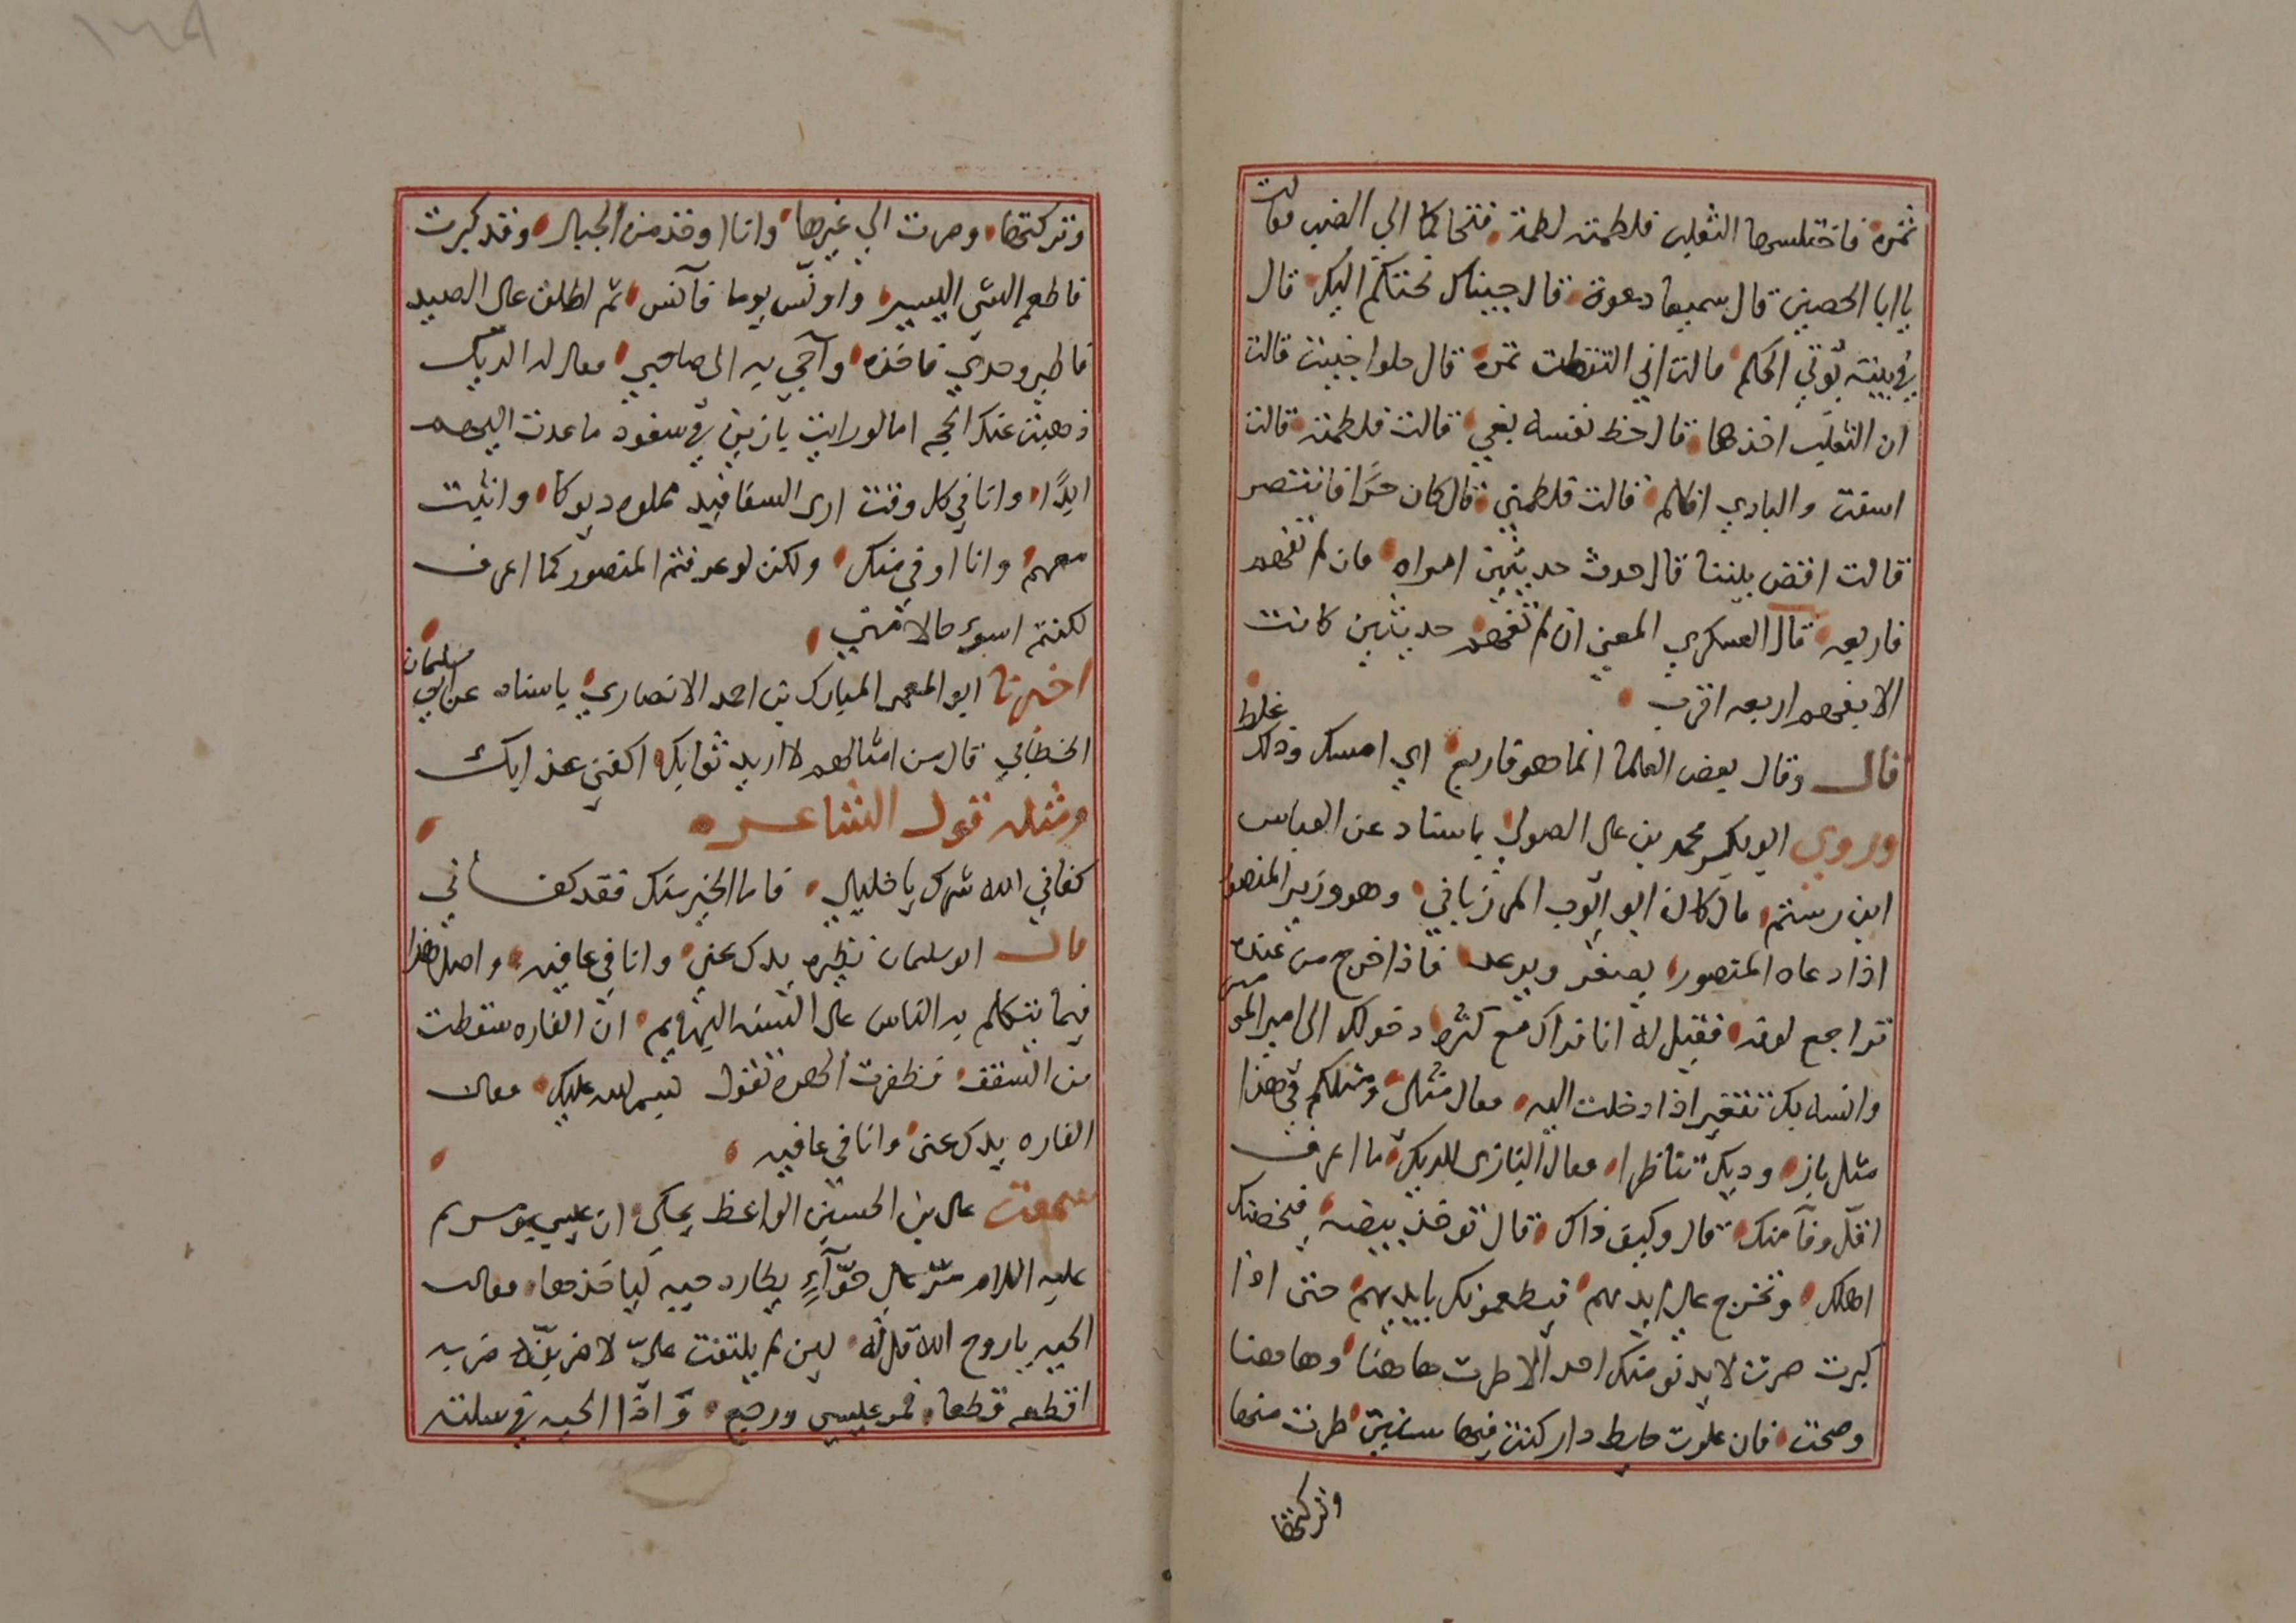 ثمرة فاختلسها الثعلب فلطمته لطمة فتحاكما الي الضب فقالت
يا ابا الحصين قال سميعا دعوة قال جيناك نحتكم اليك قال
في بيته يؤتي الحكم قالت اني التقطت تمرة قال حلوا جنيت قالت
ان الثعلب اخذها قال حظ نفسه بغي قالت فلطمته قالت
اسفت والبادي اظلم قالت فلطمني قال كان حرا فانتصر
قالت اقض بيننا قال حدث حديثين امراه فان لم تفهم
فاربعه قال العسكري المعني ان لم تفهم حديثين كانت
الا بفهم اربعه اقرب
قال وقال بعض العلما انما هو فاربع اي امسك وذلك غلط
وروي ابو بكر محمد بن علي الصولي باسناد عن العباس
ابن رستم قال كان ابو ايوب المرزباني وهو وزير المنصور
اذا دعاه المنصور يصفر ويرعد فاذا خرج من عنده
تراجع لونه فقيل له انا نراك مع كثرة دخولك الى امير المومنين
وانسه بك تتغير اذا دخلت اليه فقال مثلي ومثلكم في هذا
مثل باز وديك تناظرا فقال البازي للديك ما اعرف
اقل وفا منك قال وكيف ذاك قال توخذ بيضه فيحضنك
اهلك وتخرج على ايديهم فيطعمونك بايديهم حتى اذا
كبرت صرت لا يدنو منك احد الا طرت هاهنا وهاهنا
وصحت فان علوت حايط دار كنت فيها سنين طرت منها
وتركتها
وتركتها وصرت الي غيرها وانا اوخذ من الجبال وقد كبرت
فاطعم الشي اليسير واونس يوما فآنس ثم اطلق على الصيد
فاطير وحدي فاخذه وآجي به الى صاحبي فقال له الديك
ذهبت عنك الحجه اما لو رايت بازين في سفود ما عدت اليهم
ابدًا وانا في كل وقت ارى السفافيد مملوه ديوكا وابيت
معهم وانا اوفي منك ولكن لو عرفتم المنصور كما اعرف
لكنتم اسوء حالا مني
اخبرنا ابو المعمر المبارك بن احمد الانصاري باسناد عن ابي سليمان
الخطابي قال من امثالهم لا اريد ثوابك اكفني عذابك
ومثله قول الشاعر
كفاني الله شرك يا خليلي فاما الخير منك فقد كفاني
قال ابو سليمان نظيره يدك عني وانا في عافيه واصل هذا
فيما يتكلم به الناس على السنه البهايم ان الفاره سقطت
من السقف فظفرت الهره تقول بسم الله عليك فقالت
الفاره يدك عني وانا في عافيه
سمعت علي بن الحسين الواعظ يحكي ان عيسي بن مريم
عليه السلام مر على حوّآءٍ يطارد حيه لياخذها فقالت
الحيه يا روح الله قل له لين لم يلتفت عني لاضربنه ضربه
اقطعه قطعا فمر عيسي ورجع واذا الحيه في سلته